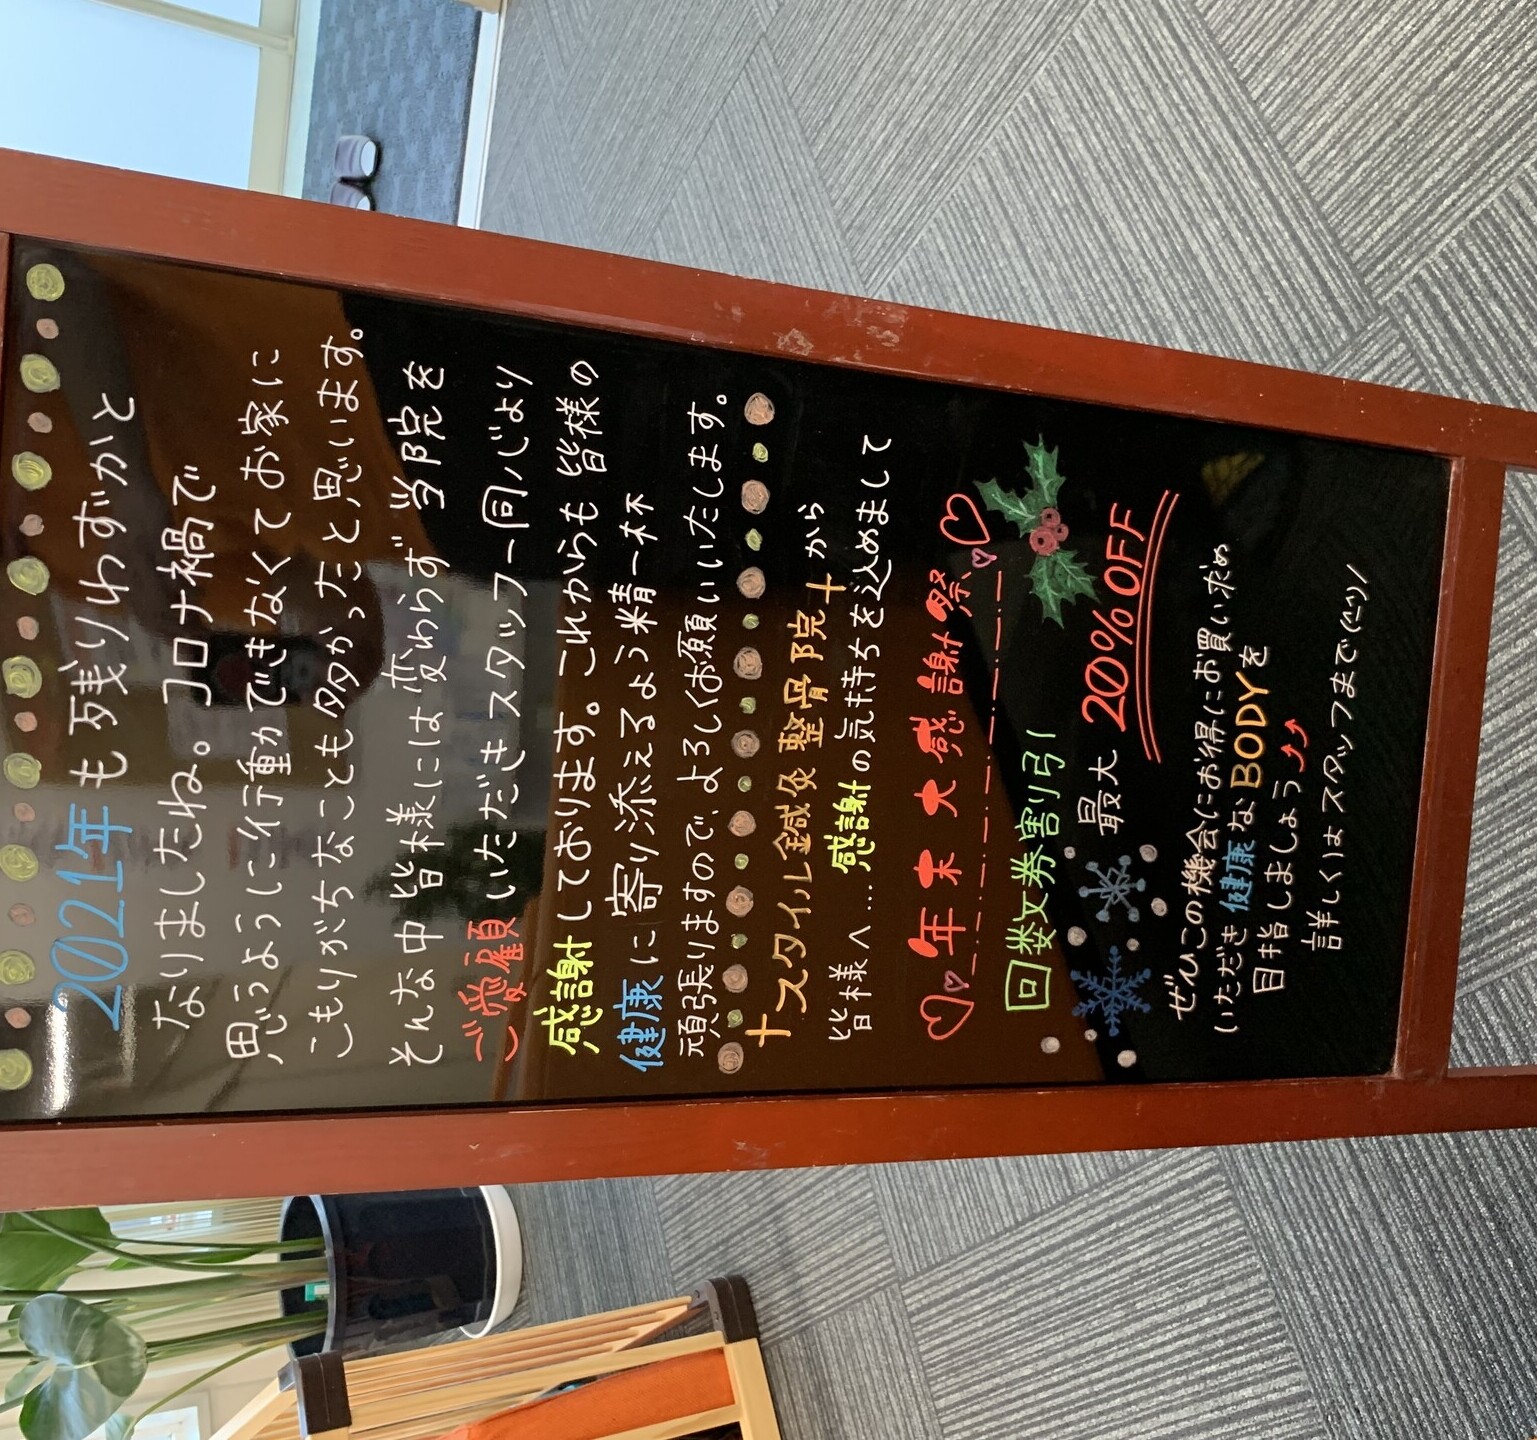 2021年も残りわずかと
なりましたね。コロナ禍で
思うように行動ができなくてお家に
こもりがちなことも多かったと思います。
そんな中皆様には変わらず当院を
ご愛顧いただきスタッフ一同心より
感謝しております。これからも皆様の
健康に寄り添えるよう精一杯
頑張りますので、よろしくお願いいたします。
+スタイル鍼灸整骨院+から
皆様へ…感謝の気持ちを込めまして
年末大感謝祭
回数券割引
最大20%OFF
ぜひこの機会にお得にお買い求め
いただき健康なBODYを
目指しましょう
詳しくはスタッフまで